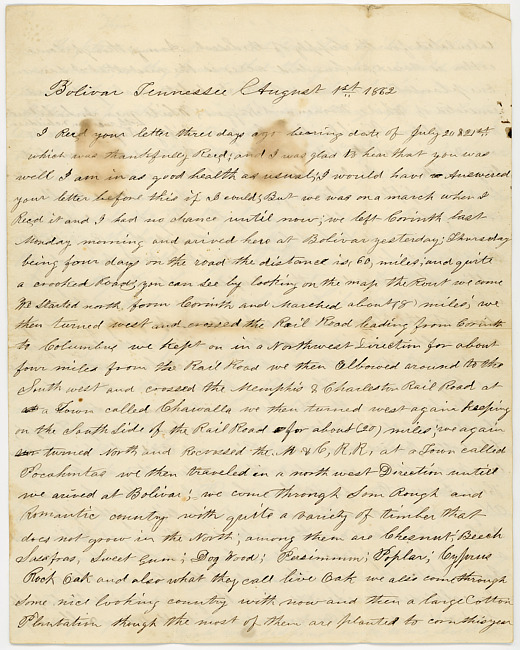 Bolivar Tennessee August 1st 1862
I Recd your letter three days ago bearing date of July 20 & 21st
which was thankfully Recd; and I was glad to hear that you was
well I am in as good health as usual; I would have Answered
your letter before this if I could; But we was on a march when I
Recd it and I had no chance until now; we left Corinth last
Monday morning and arived here at Bolivar yesterday; Thursday
being four days on the road the distance is, 60, miles; and quite
a crooked Road; you can see by looking on the map the Rout we come
We Started north from Corinth and Marched about (8) miles' we
then turned west and crossed the Rail Road leading from Corinth
to Columbus we kept on in a Northwest Direction for about
four miles from the Rail Road we then Elbowed around to the
South west and crossed the Memphis & Charleston Rail Road at
a Town called Chawalla we then turned west again keeping
on the South Side of the Rail Road for about (20) miles we again
turned North and Recrossed the M & C, R, R, at a Town called
Pocahuntas we then traveled in a north west Direction untill
we arived at Bolivar; we come through Som Rough and
Romantic country with quite a variety of timber that
does not grow in the North; among them are Chesnut; Beech
Saxafras, Sweet Gum; Dog Wood; Pursimmun; Poplar; Cyprus
Rock Oak and also what they call live Oak we also com through
Some nice looking country with now and then a large Cotton
Plantation though the most of them are planted to corn this year